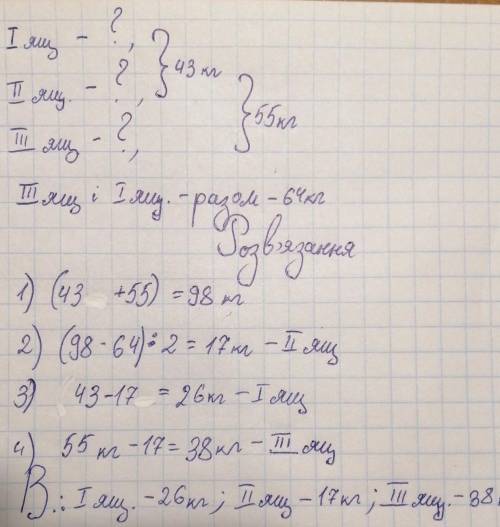 I ящ - ?, } 43 кг
II ящ. - ?, } 55 кг
III ящ - ?,
III ящ і I ящ. - разом - 64 кг
Розв'язання
1) (43 +55) = 98 кг
2) (98 - 64) : 2 = 17 кг - II ящ
3) 43 - 17 = 26 кг - I ящ
4) 55 кг - 17 = 38 кг - III ящ
В.: I ящ. - 26 кг ; II ящ - 17 кг ; III ящ. - 38